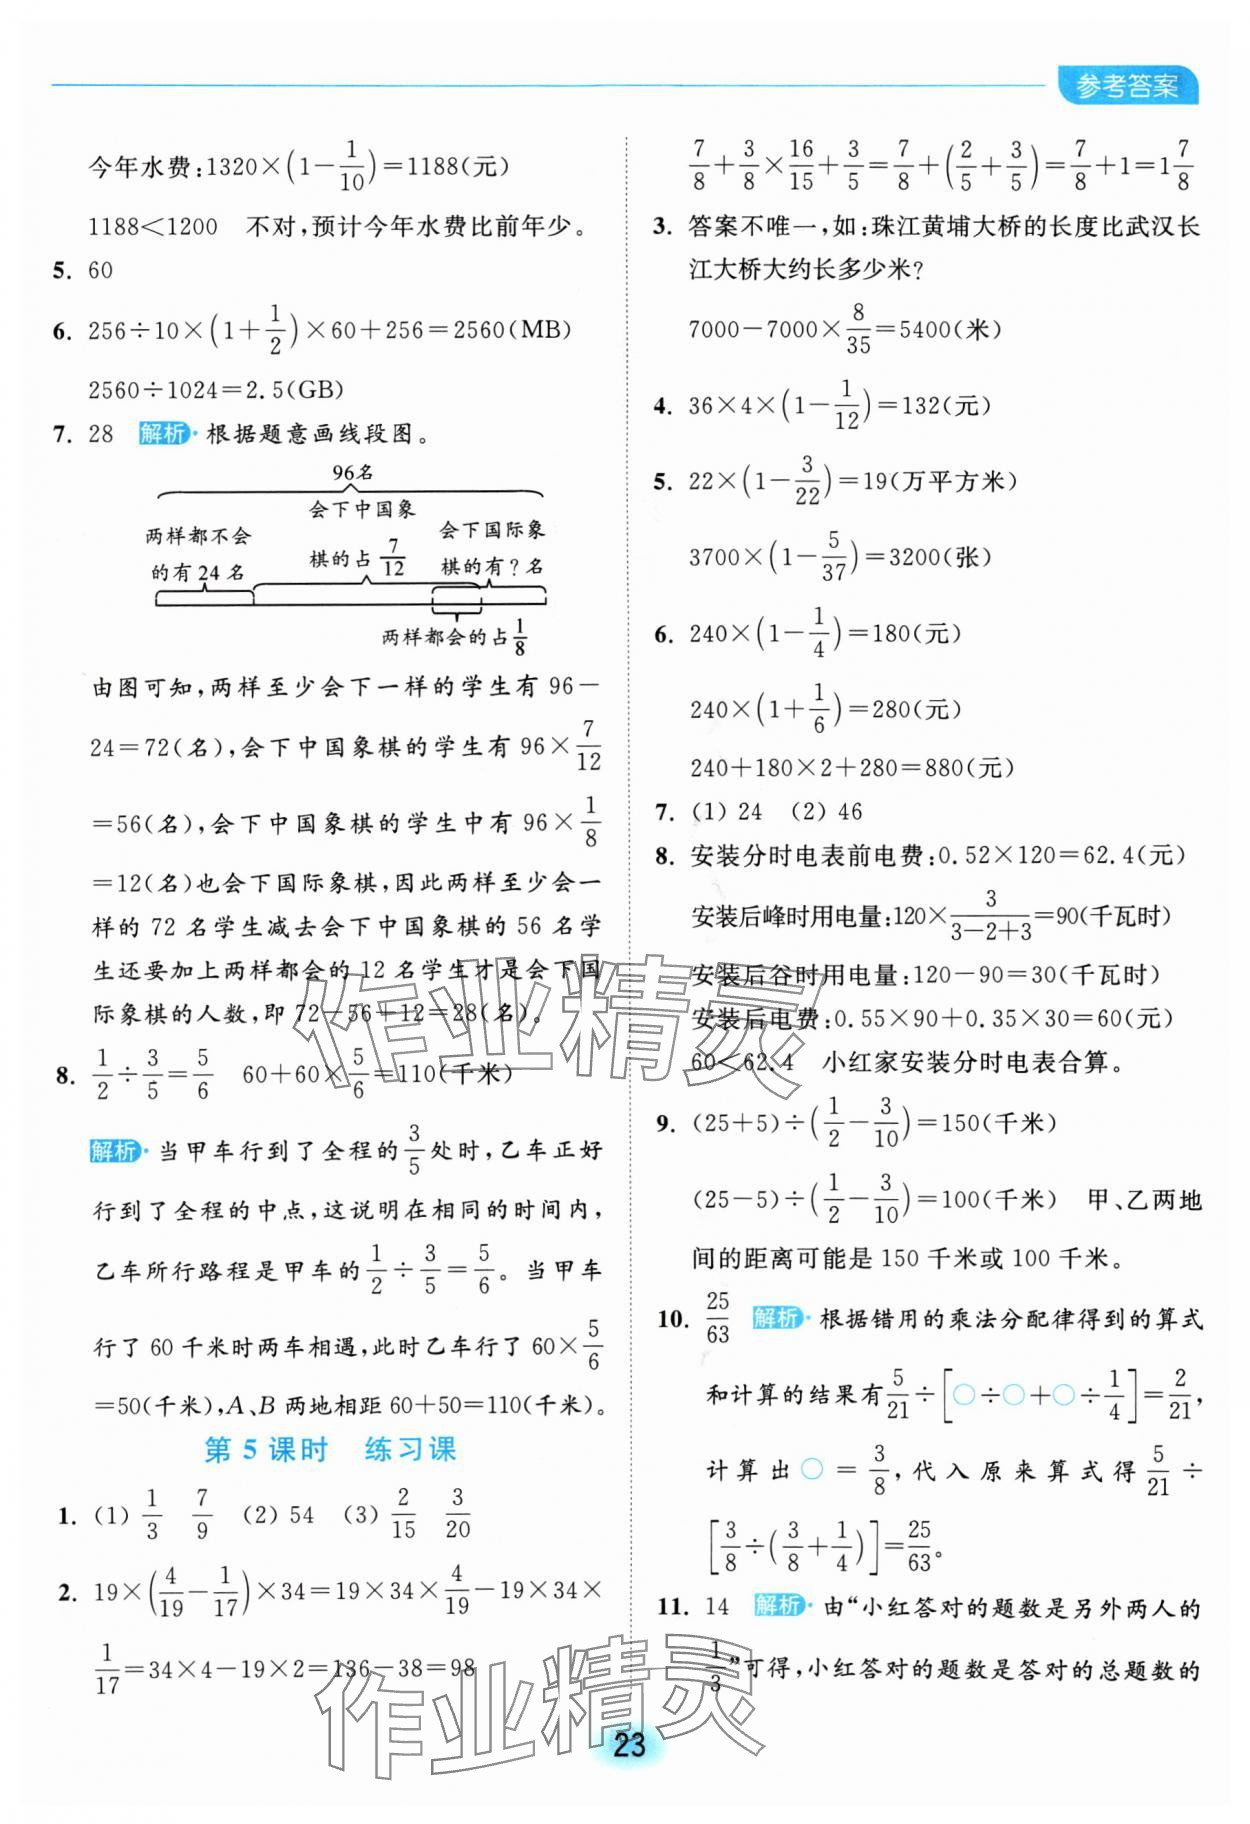 参考答案
今年水费:1320×(1-1/10)=1188(元)
1188<1200 不对,预计今年水费比前年少。
5. 60
6. 256÷10×(1+1/2)×60+256=2560(MB)
2560÷1024=2.5(GB)
7. 28 解析·根据题意画线段图。
96名
会下中国象
两样都不会
会下国际象
棋的占7/12
的有24名
棋的有?名
两样都会的占1/8
由图可知,两样至少会下一样的学生有96-
24=72(名),会下中国象棋的学生有96×7/12
=56(名),会下中国象棋的学生中有96×1/8
=12(名)也会下国际象棋,因此两样至少会一
样的72名学生减去会下中国象棋的56名学
生还要加上两样都会的12名学生才是会下国
际象棋的人数,即72-56+12=28(名)。
8. 1/2÷3/5=5/6 60+60×5/6=110(千米)
解析·当甲车行到了全程的3/5处时,乙车正好
行到了全程的中点,这说明在相同的时间内,
乙车所行路程是甲车的1/2÷3/5=5/6。当甲车
行了60千米时两车相遇,此时乙车行了60×5/6
=50(千米),A、B两地相距60+50=110(千米)。
第5课时 练习课
1. (1)1/3 7/9 (2)54 (3)2/15 3/20
2. 19×(4/19-1/17)×34=19×34×4/19-19×34×
1/17=34×4-19×2=136-38=98
7/8+3/8×16/15+3/5=7/8+(2/5+3/5)=7/8+1=1 7/8
3. 答案不唯一,如:珠江黄埔大桥的长度比武汉长
江大桥大约长多少米?
7000-7000×8/35=5400(米)
4. 36×4×(1-1/12)=132(元)
5. 22×(1-3/22)=19(万平方米)
3700×(1-5/37)=3200(张)
6. 240×(1-1/4)=180(元)
240×(1+1/6)=280(元)
240+180×2+280=880(元)
7. (1)24 (2)46
8. 安装分时电表前电费:0.52×120=62.4(元)
安装后峰时用电量:120×3/(3-2+3)=90(千瓦时)
安装后谷时用电量:120-90=30(千瓦时)
安装后电费:0.55×90+0.35×30=60(元)
60<62.4 小红家安装分时电表合算。
9. (25+5)÷(1/2-3/10)=150(千米)
(25-5)÷(1/2-3/10)=100(千米) 甲、乙两地
间的距离可能是150千米或100千米。
10. 25/63 解析·根据错用的乘法分配律得到的算式
和计算的结果有5/21÷[○÷○+○÷1/4]=2/21,
计算出○=3/8,代入原来算式得5/21÷
[3/8÷(3/8+1/4)]=25/63。
11. 14 解析·由“小红答对的题数是另外两人的
1/3”可得,小红答对的题数是答对的总题数的
作业精灵
作业精灵
23